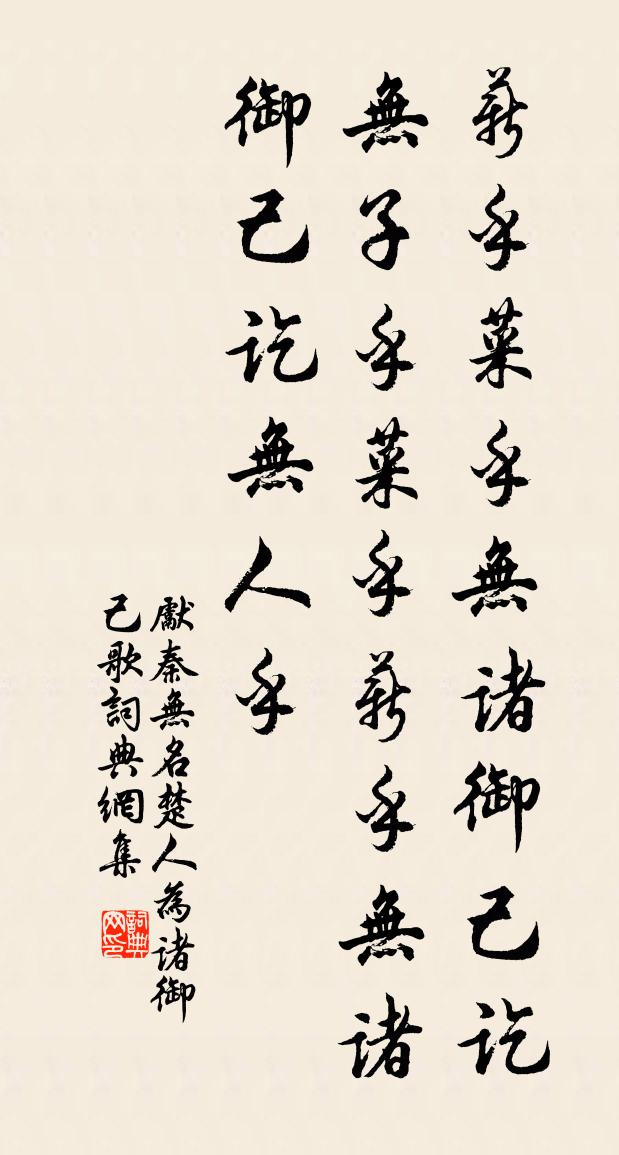 薪乎菜乎無諸御己訖
無子乎菜乎薪乎無諸
御己訖無人乎
獻秦無名楚人為諸御
己歌詞典網集
詞典網印